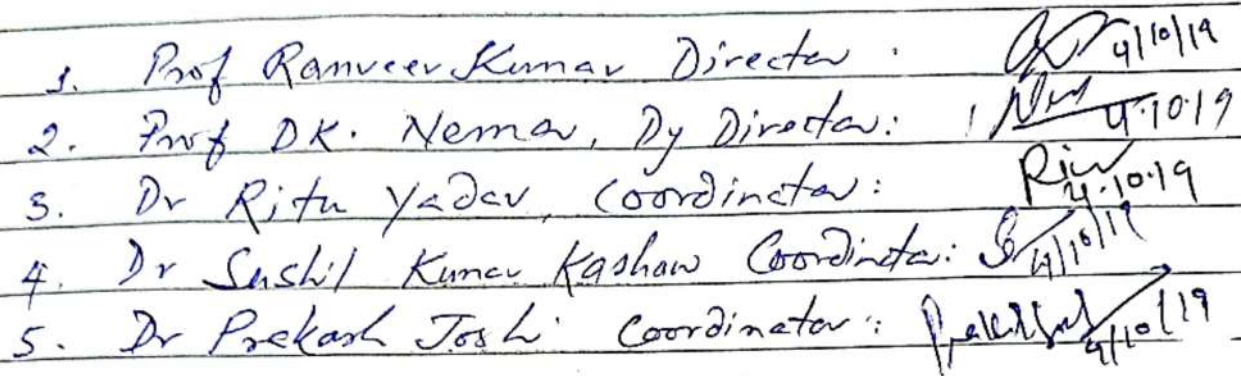 1. Prof Ranveer Kumar Director : 4/10/19
2. Prof DK. Nema, Dy Director: 4.10.19
3. Dr Ritu Yadav, Coordinator: 4.10.19
4. Dr Sushil Kumar Kashaw Coordinator: 4/10/19
5. Dr Prakash Joshi Coordinator: 4/10/19